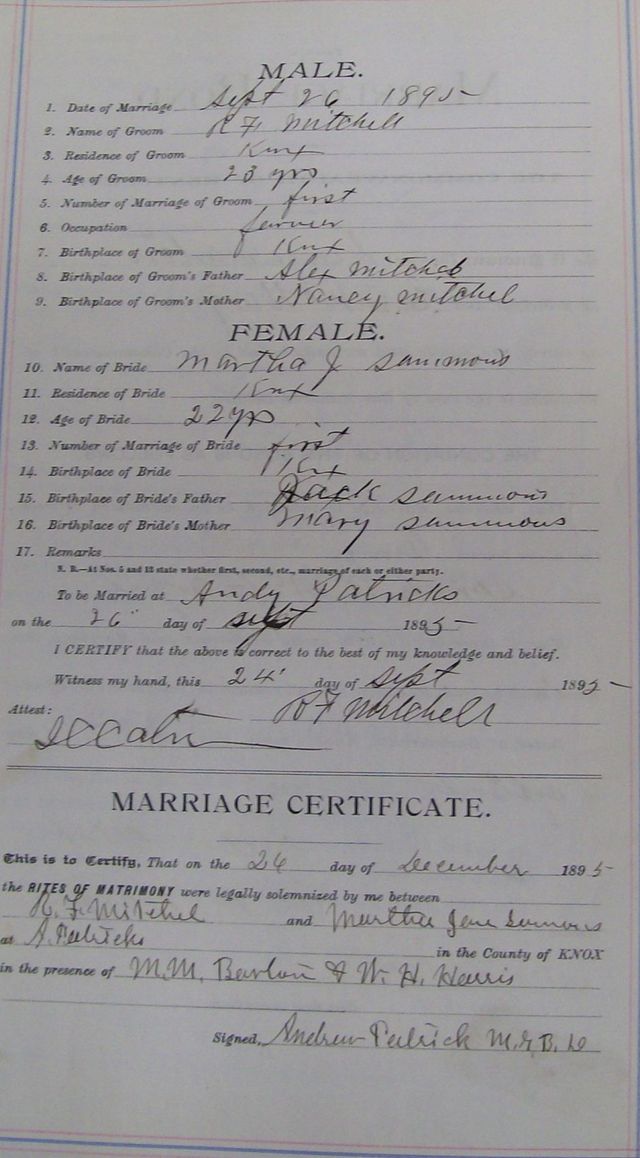 MALE.
1. Date of Marriage Sept 26 1895
2. Name of Groom R F Mitchell
3. Residence of Groom Knx
4. Age of Groom 23 yrs
5. Number of Marriage of Groom first
6. Occupation farmer
7. Birthplace of Groom Knx
8. Birthplace of Groom's Father Alex Mitchel
9. Birthplace of Groom's Mother Nancy Mitchel
FEMALE.
10. Name of Bride Martha J Sammons
11. Residence of Bride Knx
12. Age of Bride 22 yrs
13. Number of Marriage of Bride first
14. Birthplace of Bride Knx
15. Birthplace of Bride's Father Jack Sammons
16. Birthplace of Bride's Mother Mary Sammons
17. Remarks
N. B.—At Nos. 5 and 13 state whether first, second, etc., marriage of each or either party.
To be Married at Andy Patricks
on the 26" day of Sept 1895
I CERTIFY that the above is correct to the best of my knowledge and belief.
Witness my hand, this 24' day of Sept 1895
Attest: R F Mitchell
MARRIAGE CERTIFICATE.
This is to Certify, That on the 26 day of December 1895
the RITES OF MATRIMONY were legally solemnized by me between
R. F. Mitchel and Martha Jane Samons
at A. Patricks in the County of KNOX
in the presence of M. M. Barton & W. H. Harris
Signed, Andrew Patrick M. G. B.